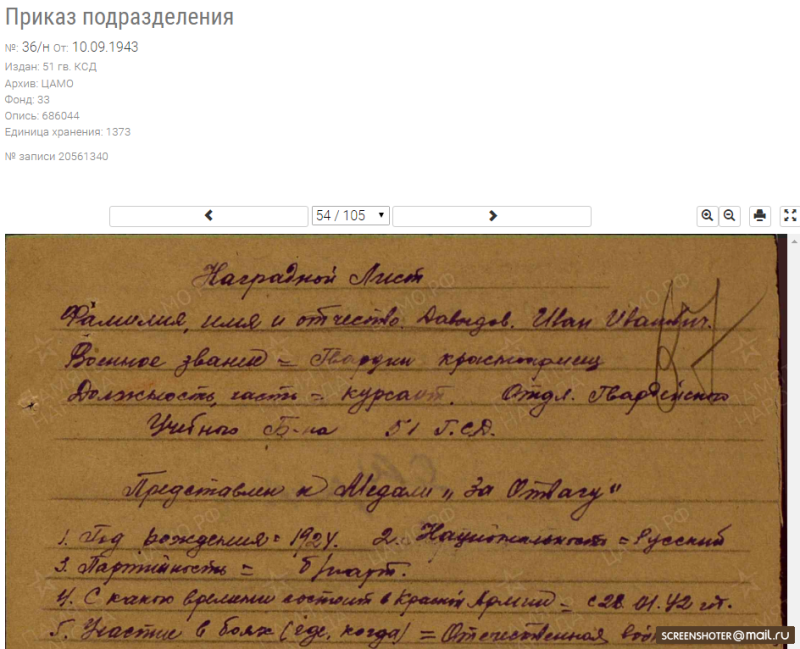 Приказ подразделения
№: 36/н От: 10.09.1943
Издан: 51 гв. КСД
Архив: ЦАМО
Фонд: 33
Опись: 686044
Единица хранения: 1373
№ записи 20561340
54 / 105
Наградной Лист
Фамилия, имя и отчество. Давыдов. Иван Иванович.
Военное звание = Гвардии красноармеец
Должность, часть = курсант. Отдл. Гвардейского
Учебного Б-на 51 Г.С.Д.
Представлен к Медали „За Отвагу"
1. Год рождения = 1924. 2. Национальность = Русский
3. Партийность = б/парт.
4. С какого времени состоит в Красной Армии = с 28.01.42 г.
5. Участие в боях (где, когда) = Отечественная
SCREENSHOTER@mail.ru